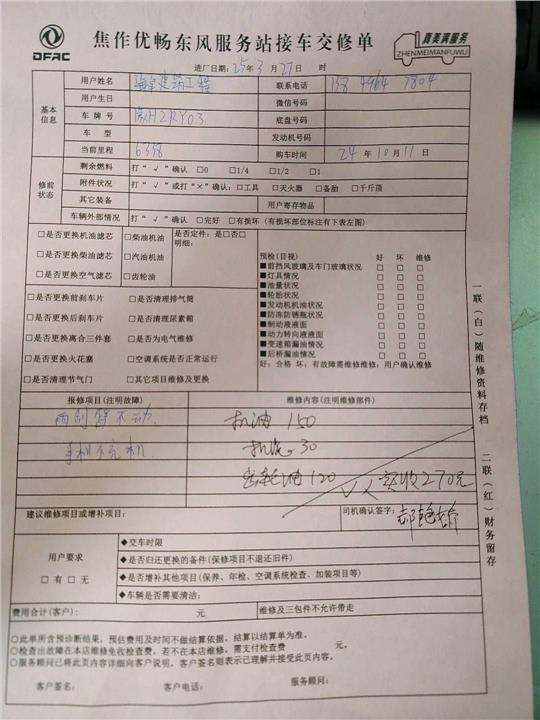 DFAC
焦作优畅东风服务站接车交修单
真美满服务
ZHENMEIMANFUWU
进厂日期: 25年3月27日 时
基本信息
用户姓名 联系电话
用户生日 微信号码
车牌号 2RY03 底盘号码
车型 发动机号码
当前里程 6358 购车时间 24年10月11日
修前状态
剩余燃料 打“√”确认 □0 □1/4 □1/2 □1
附件状况 打“√”或打“×”确认:□工具 □灭火器 □备胎 □千斤顶
其它装备 用户寄存物品
车辆外部情况 打“√”确认 □完好 □有损坏(有损坏部位标注有下表左图)
□是否更换机油滤芯 □柴油机油 是否定件:是□否□
明细:
□是否更换柴油滤芯 □汽油机油
□是否更换空气滤芯 □齿轮油
预检(目视) 好 坏 维修
■前挡风玻璃及车门玻璃状况 □ □ □
■灯具情况 □ □ □
■油量状况 □ □ □
■轮胎状况 □ □ □
■发动机机油状况 □ □ □
■防冻防锈瓶状况 □ □ □
■制动液液面 □ □ □
■动力转向液液面 □ □ □
■变速箱漏油情况 □ □ □
■后桥漏油情况 □ □ □
好:合格 坏:有故障需维修维修:用户确认维修
□是否更换前刹车片 □是否清理排气筒
□是否更换后刹车片 □是否清理尿素箱
□是否更换离合三件套 □是否为电气维修
□是否更换火花塞 □空调系统是否正常运行
□是否清理节气门 □其它项目维修及更换
报修项目(注明故障) 维修内容(注明维修部件)
雨刮器不动 机油 150
手机不充机 机滤 30
齿轮油 120 实收270元
建议维修项目或增补项目: 司机确认签字:
用户要求
□有 □无
◆交车时限
◆是否归还更换的备件(保修项目不退还旧件)
◆是否增补其他项目(保养、年检、空调系统检查、加装项目等)
◆车辆是否需要清洁:
费用合计(客户): 元 维修及三包件不允许带走
○此单所含预诊断结果,预估费用及时间不做结算依据,结算以结算单为准。
○检查出故障在本店维修免收检查费,若不在本店维修,需支付检查费 元。
○服务顾问已将此页内容详细向客户说明,客户签名则表示已理解并接受此页内容。
客户签名: 客户电话: 服务顾问:
一联(白)随维修资料存档
二联(红)财务留存